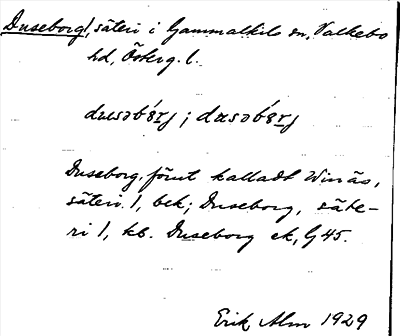 Duseborg, säteri i Gammalkils sn, Valkebo
hd, Österg. l.
Duseborg, förut kalladt Winäs,
säteri 1, bek; Duseborg, säte-
ri 1, kb. Duseborg ek, G 45.
Erik Alm 1929